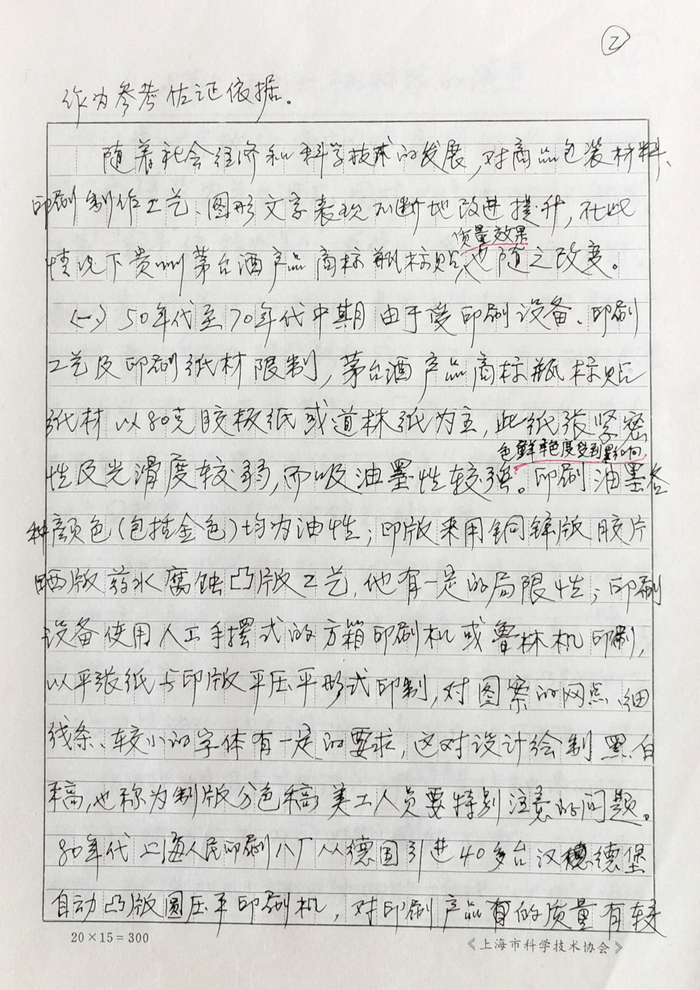 ②
作为参考佐证依据。
随着社会经济和科学技术的发展,对商品包装材料、
印刷制作工艺、图形文字表现不断地改进提升,在此
质量效果
情况下贵州茅台酒产品商标瓶标贴也随之改变。
(一)50年代至70年代中期由于受印刷设备、印刷
工艺及印刷纸材限制,茅台酒产品商标瓶标贴
纸材以80克胶板纸或道林纸为主,此纸张紧密
色鲜艳度受到影响
性及光滑度较弱,而吸油墨性较强。印刷油墨各
种颜色(包括金色)均为油性;印版采用铜锌版胶片
晒版药水腐蚀凸版工艺,他有一定的局限性;印刷
设备使用人工手摆式的方箱印刷机或鲁林机印刷,
以平张纸与印版平压平形式印制,对图案的网点、细
线条、较小的字体有一定的要求,这对设计绘制黑白
稿,也称为制版分色稿美工人员要特别注意的问题。
80年代上海人民印刷八厂从德国引进40多台汉德堡
自动凸版圆压平印刷机,对印刷产品的质量有较
20×15=300
《上海市科学技术协会》